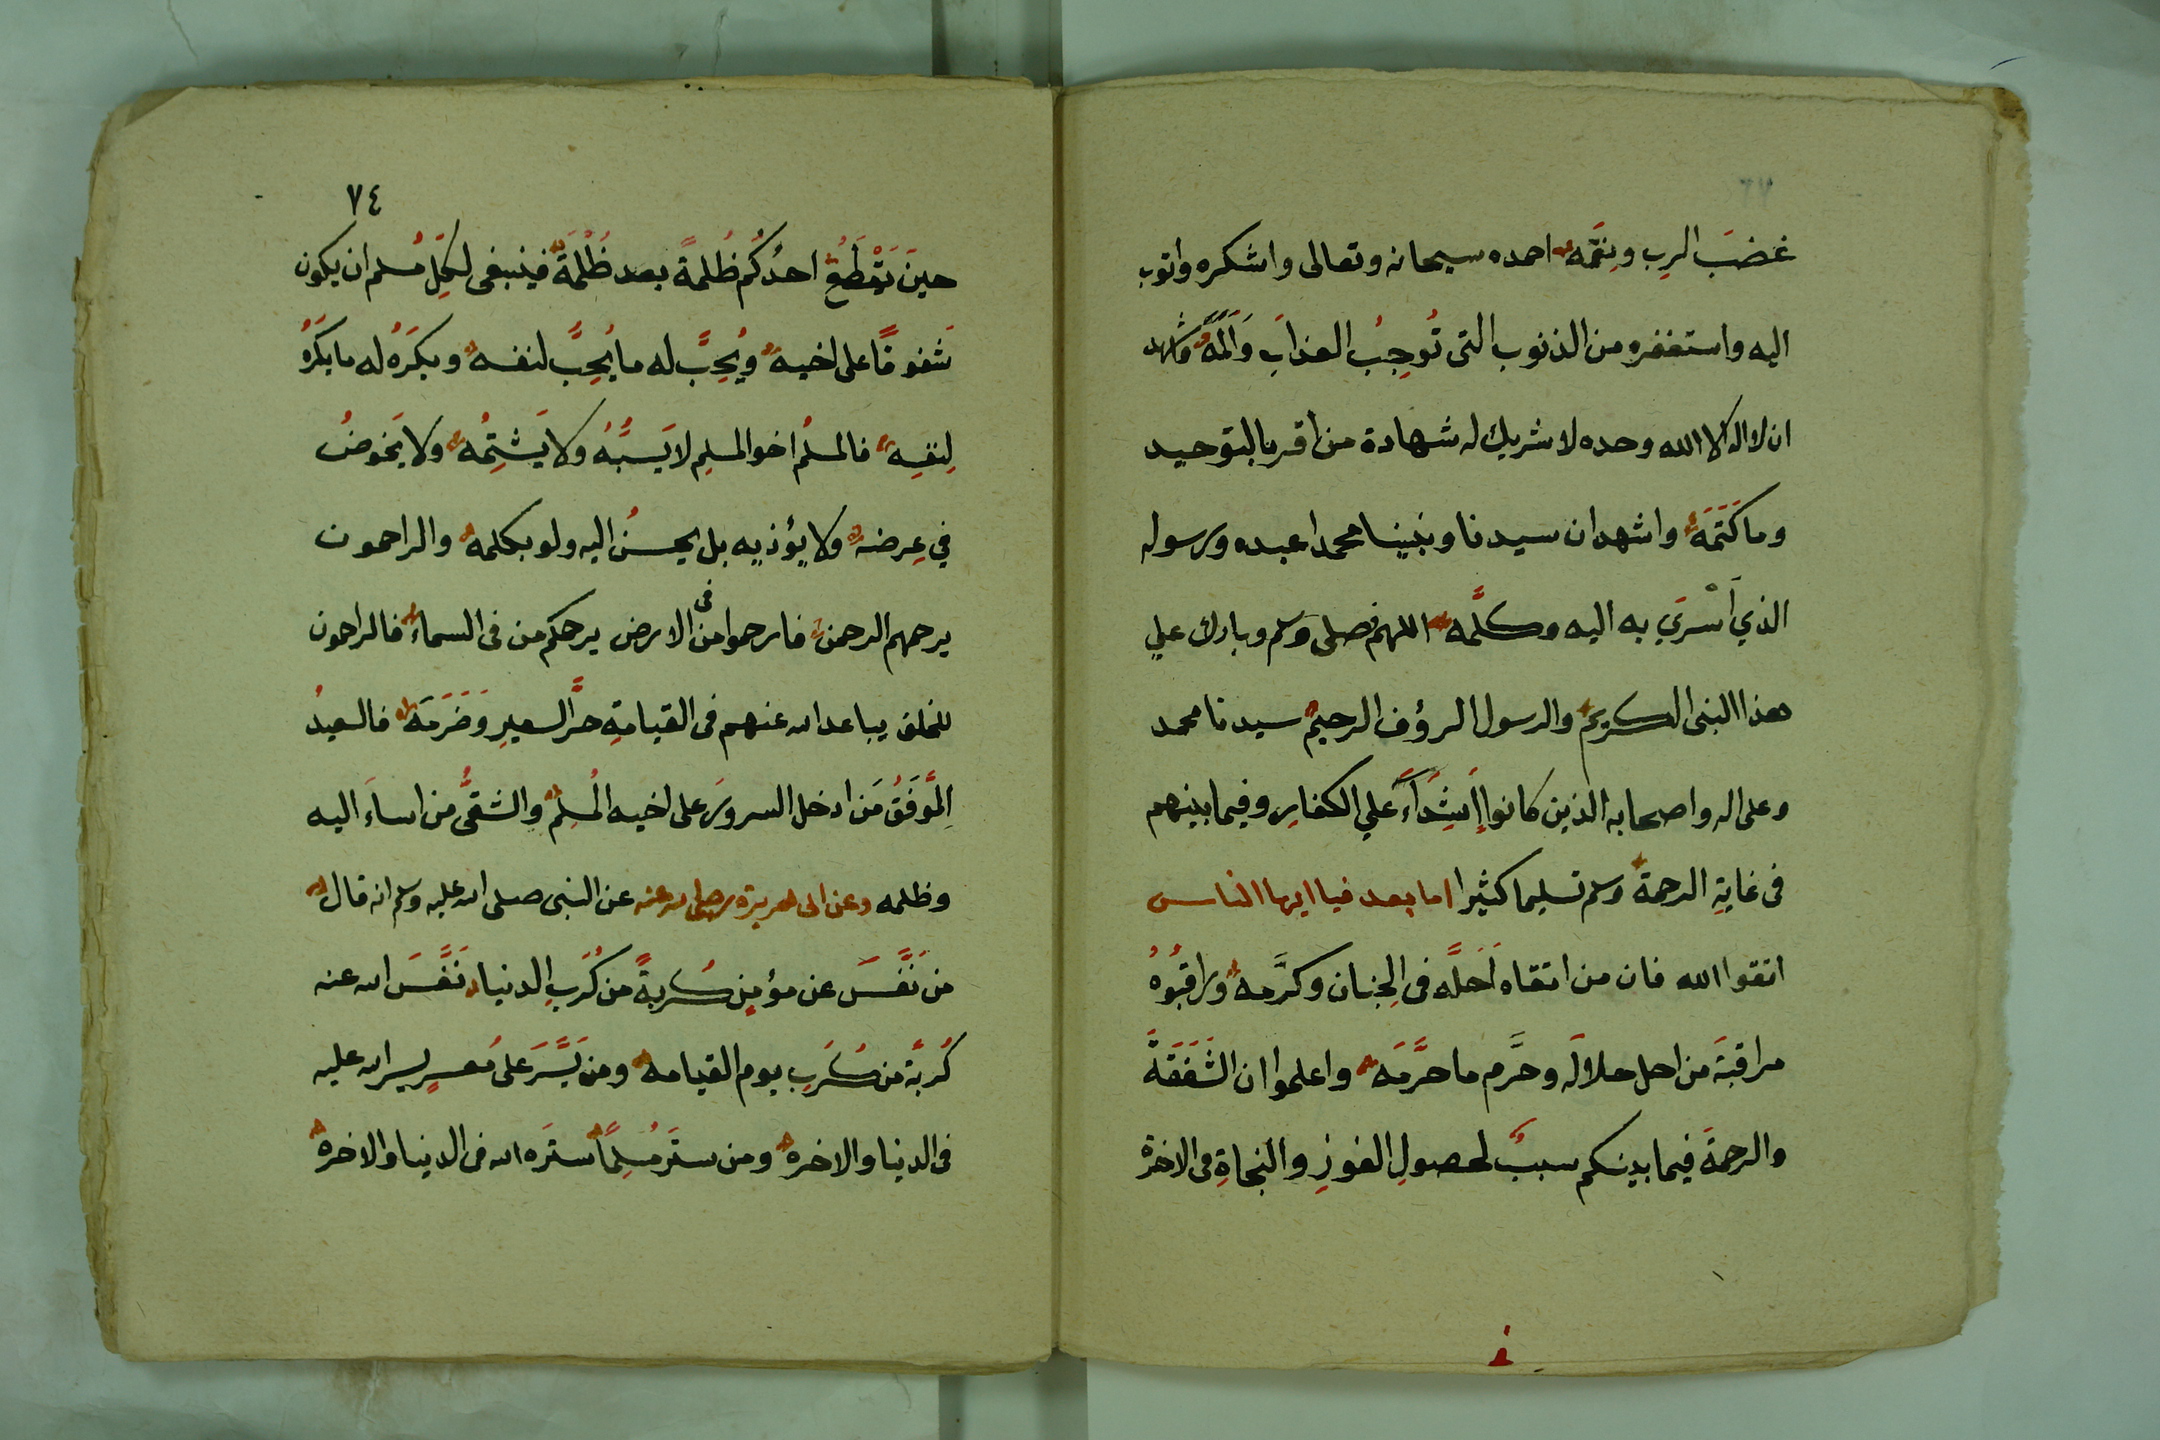 غضبَ الربِ ونِقَمَه احمده سبحانه وتعالى واشكره واتوب
اليه واستغفره من الذنوب التى تُوجِبُ العذابَ وَاَلَمَهُ واشهد
ان لا اله الا الله وحده لا شريك له شهادة من اقر بالتوحيد
وما كَتَمَهُ واشهد ان سيدنا ونبينا محمدا عبده ورسوله
الذي اَسْرَي به اليه وكلَّمه اللهم فصلى وسلم وبارك علي
هذا النبى الكريم والرسول الرؤف الرحيم سيدنا محمد
وعلى اله واصحابه الذين كانوا اَشِدَّآءَ علي الكفارِ وفيما بينهم
فى غايةِ الرحمة وسلم تسليما كثيرا اما بعد فيا ايها الناس
اتقوا الله فان من اتقاه اَحَلَّه فى الجِنان وكرَّمه وراقبُوُهُ
مراقبَةَ من احل حلالَه وحَرَّم ما حرَّمَه واعلموا ان الشَفَقَةَ
والرحمةَ فيما بينكم سببٌ لحصولِ الفوزِ والنجاةِ فى الاخرة
٧٤
حينَ تَقْطَعُ احدُكُم ظُلمةً بعد ظُلْمَةٍ فينبغى لكلِّ مُسلم ان يكون
شَفوقًا على اخيه ويُحِبَّ له ما يُحِبَّ لنفسه ويكرَهُ له ما يكَرَهُ
لِنفسِه فالمسلُم اخو المسلِم لا يَسبُّهُ ولا يَشتِمُه ولا يَخوضُ
في عِرضه ولا يؤذيه بل يحسنُ اليه ولو بكلمه والراحمون
يرحمهم الرحمن فارحموا من فى الارض يرحمكم من فى السماء فالراحمون
للخلق يباعد الله عنهم فى القيامةِ حرَّ السعيرِ وَضَرَمَه فالسعيدُ
المَوَّفَقُ مَن ادخل السرورَ على اخيه المُسلِم والشقىُّ من اساءَ اليه
وظلمه وعن ابى هريرة رضى الله عنه عن النبى صلى الله عليه وسلم انه قال
من نَفَّسَ عن مؤمِنٍ كُربةً من كُرَبِ الدنيا نَفَّسَ الله عنه
كُربةً من كُرَبِ يوم القيامه ومن يَسَّرَ على مُعسرٍ يسر الله عليه
فى الدنيا والاخره ومن ستَر مُسلِمًا سترَه الله فى الدنيا والاخره